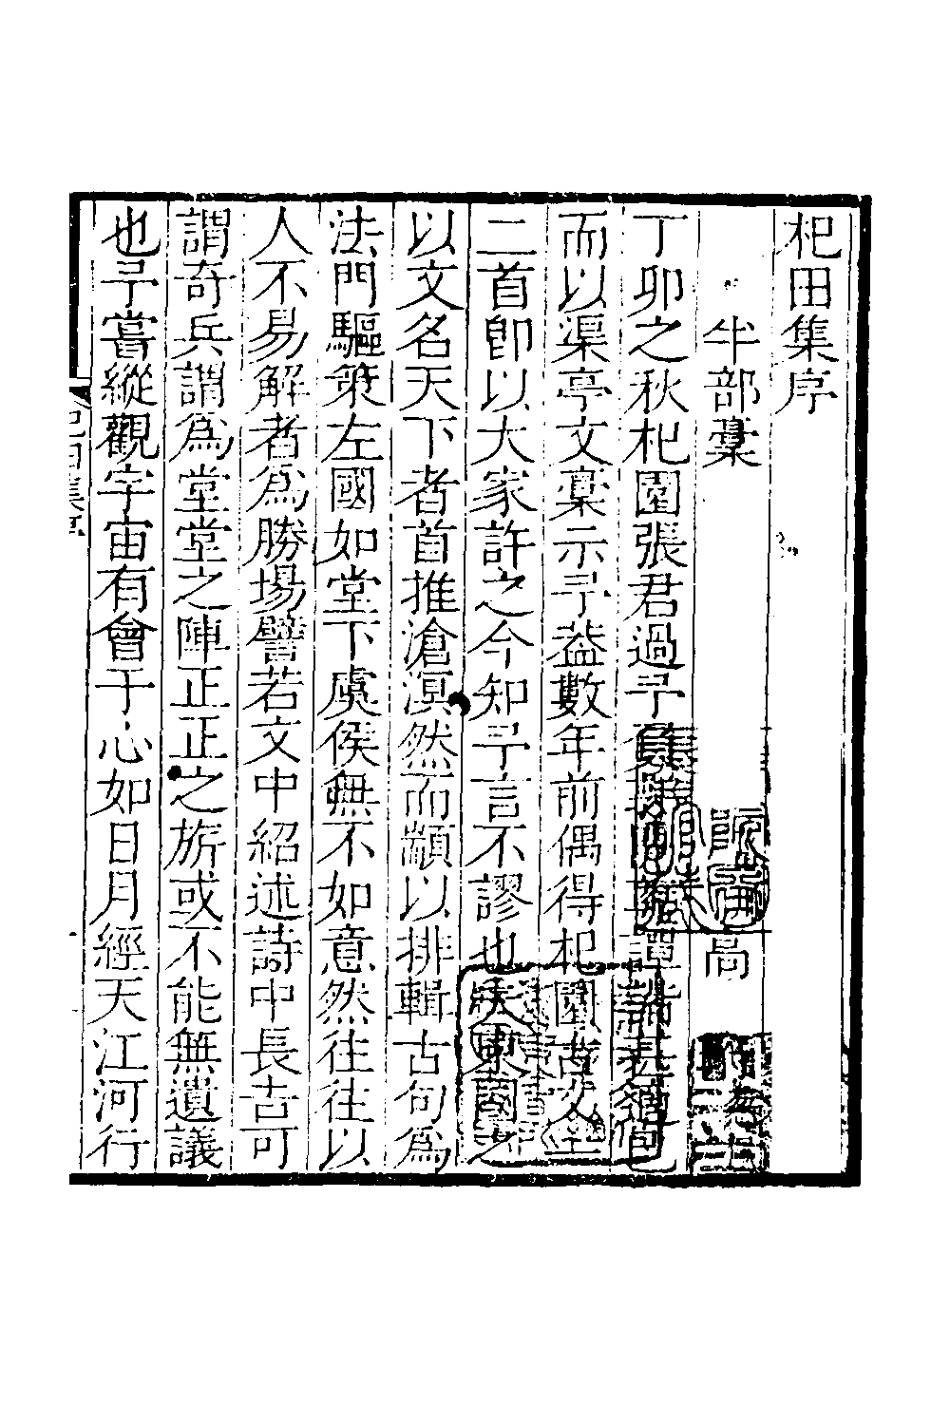 杞田集序
半部藁
高
丁卯之秋杞園張君過予譚詩甚
而以渠亭文藁示予葢數年前偶得杞園古文
二首卽以大家許之今知予言不謬也夫東國之
以文名天下者首推滄溟然而顓以排輯古句為
法門驅策左國如堂下虞侯無不如意然往往以
人不易解者爲勝場譬若文中紹述詩中長吉可
謂奇兵謂爲堂堂之陣正正之旂或不能無遺議
也予嘗縱觀宇宙有會于心如日月經天江河行